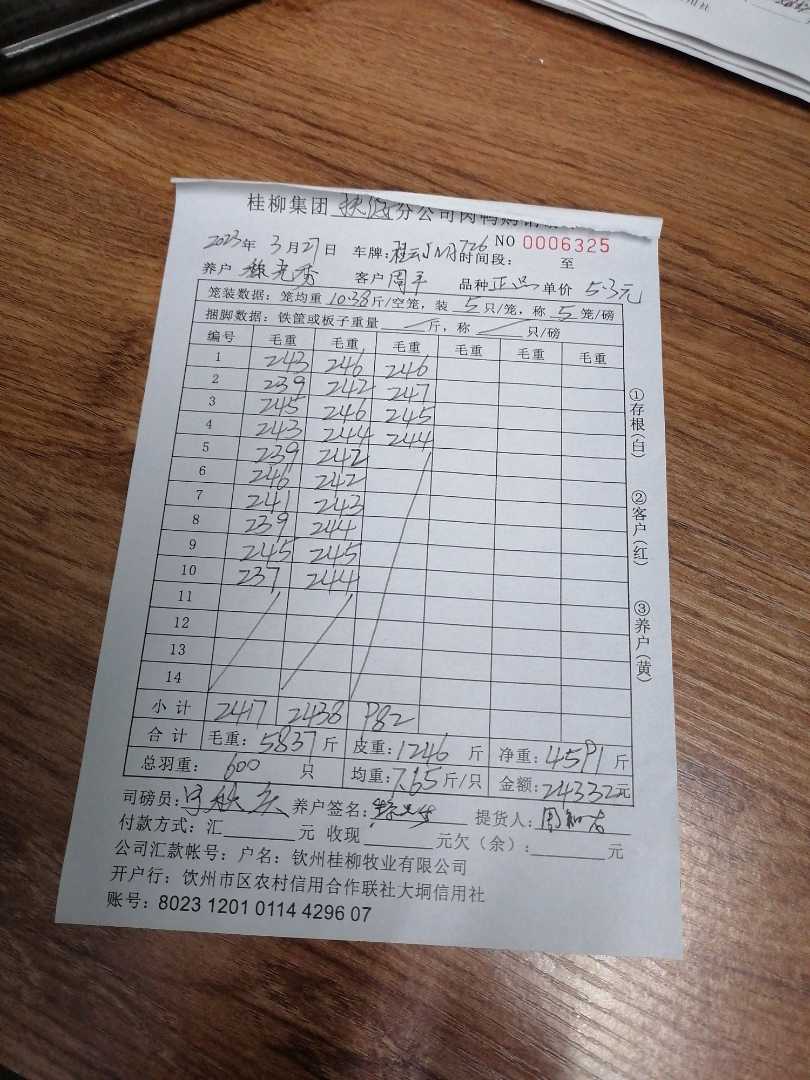 桂柳集团 分公司肉鸭购销
2023年3月27日 车牌:桂 726 时间段: 至 NO 0006325
养户 客户 周平 品种 正品 单价 5.3元
笼装数据:笼均重10.38斤/空笼,装5只/笼,称5笼/磅
捆脚数据:铁筐或板子重量 斤,称 只/磅
编号 毛重 毛重 毛重 毛重 毛重 毛重
1 243 246 246
2 239 242 247
3 245 246 245
4 243 244 244
5 239 242
6 246 242
7 241 243
8 239 244
9 245 245
10 237 244
11
12
13
14
小计 2417 2438 982
合计 毛重:5837斤 皮重:1246斤 净重:4591斤
总羽重:600只 均重:7.65斤/只 金额:24332元
司磅员: 养户签名: 提货人:
付款方式:汇 元 收现 元欠(余): 元
公司汇款帐号:户名:钦州桂柳牧业有限公司
开户行:钦州市区农村信用合作联社大垌信用社
账号:8023 1201 0114 4296 07
①存根(白) ②客户(红) ③养户(黄)